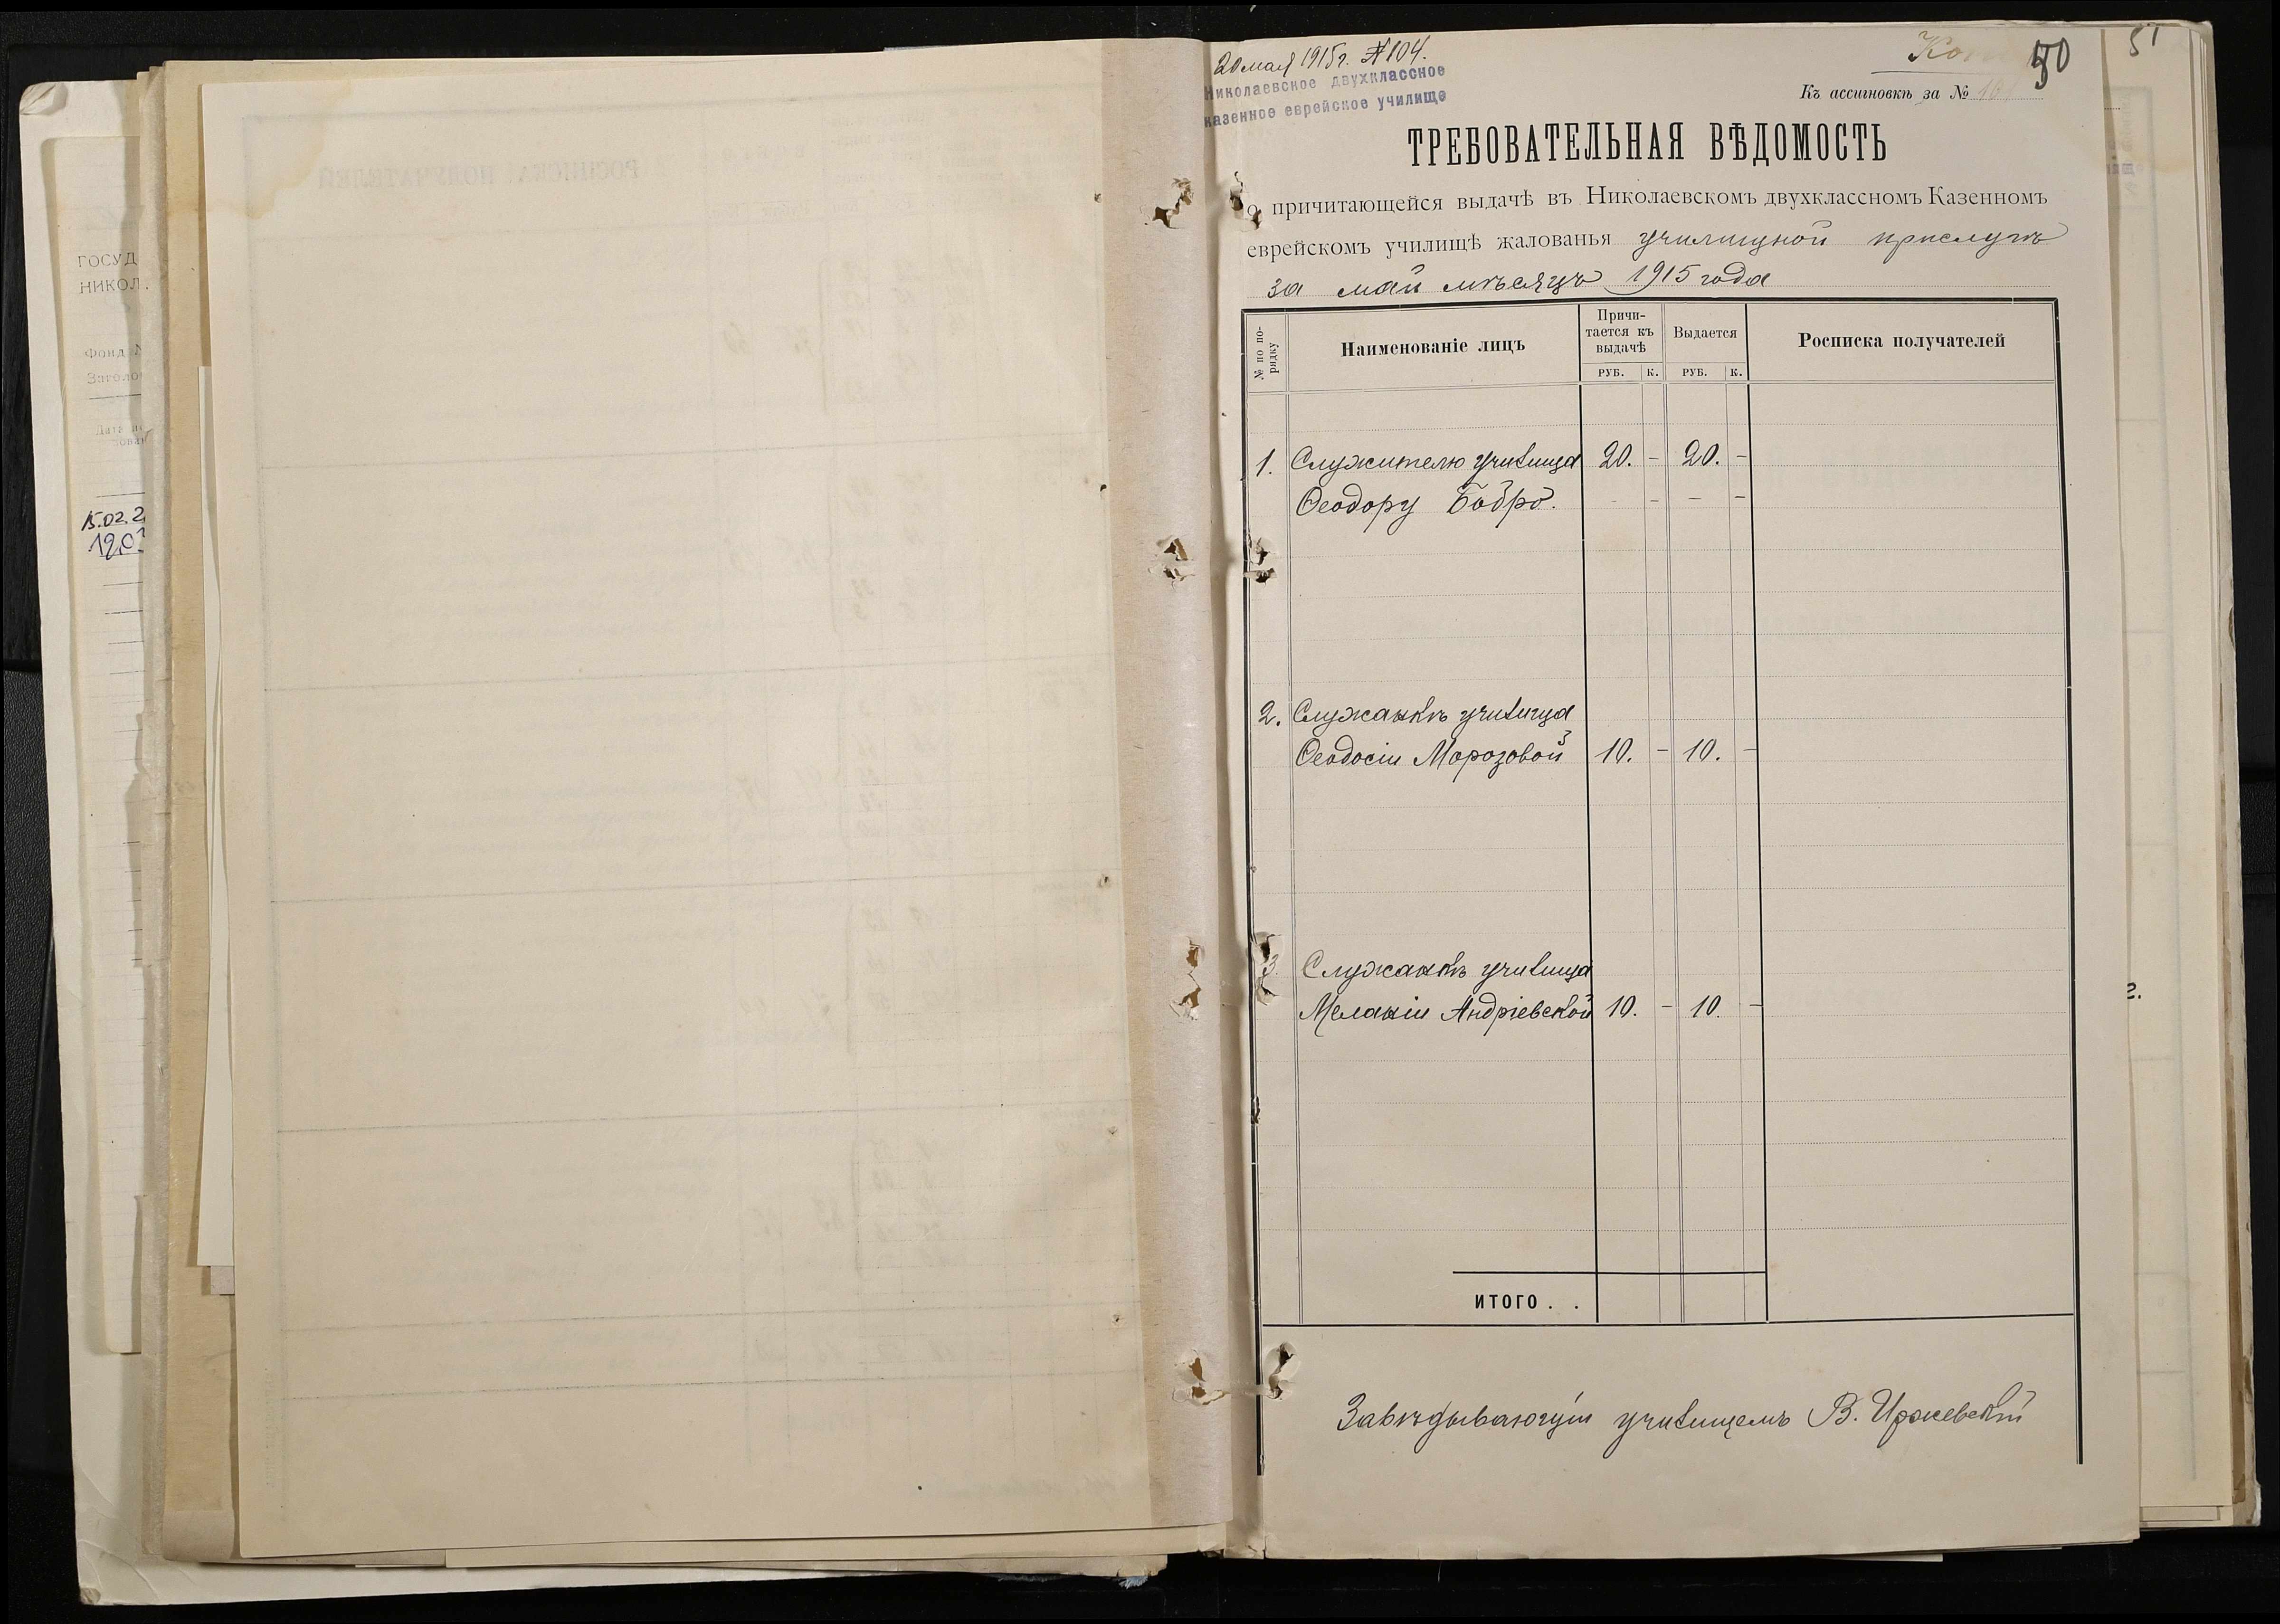 ГОСУД
НИКОЛ
Фонд
15.02.2
20 мая 1915 г. № 104.
Николаевское двухклассное
казенное еврейское училище
50
51
Къ ассигновкѣ за №
ТРЕБОВАТЕЛЬНАЯ ВѢДОМОСТЬ
о причитающейся выдачѣ въ Николаевскомъ двухклассномъ Казенномъ
еврейскомъ училищѣ жалованья училищной прислугѣ
за май мѣсяцъ 1915 года
№ по по-
рядку
Наименованіе лицъ
Причи-
тается къ
выдачѣ
Выдается
Росписка получателей
РУБ. К. РУБ. К.
1. Служителю училища 20. – 20. –
Ѳеодору Бобро. – – – –
2. Служанкѣ училища
Ѳеодосіи Морозовой 10. – 10. –
3. Служанкѣ училища
Меланіи Андріевской 10. – 10. –
ИТОГО . .
Завѣдывающій училищемъ В. Иржевскій